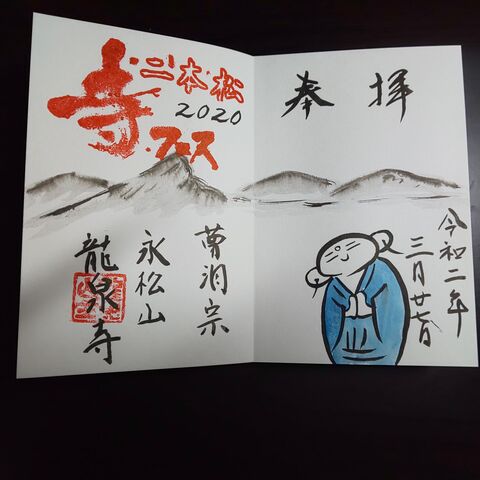 寺・二本松
2020
・フェス
曹洞宗
永松山
龍泉寺
奉拝
令和二年
三月廿七日